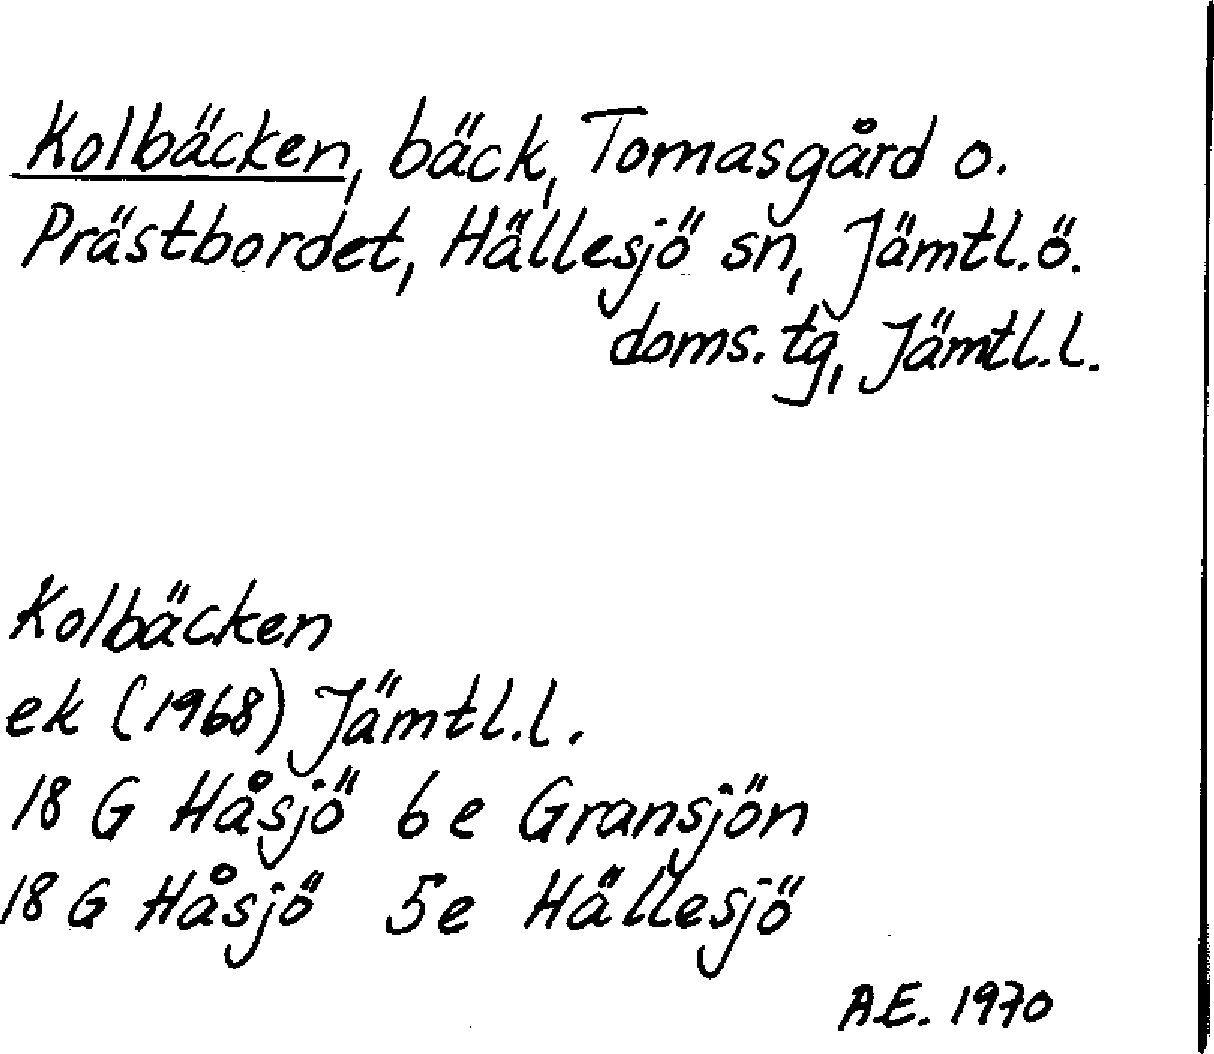 Kolbäcken, bäck, Tomasgård o.
Prästbordet, Hällesjö sn, Jämtl.ö.
doms.tg, Jämtl.l.
Kolbäcken
ek (1968) Jämtl.l.
18 G Håsjö 6e Gransjön
18 G Håsjö 5e Hällesjö
A.E. 1970